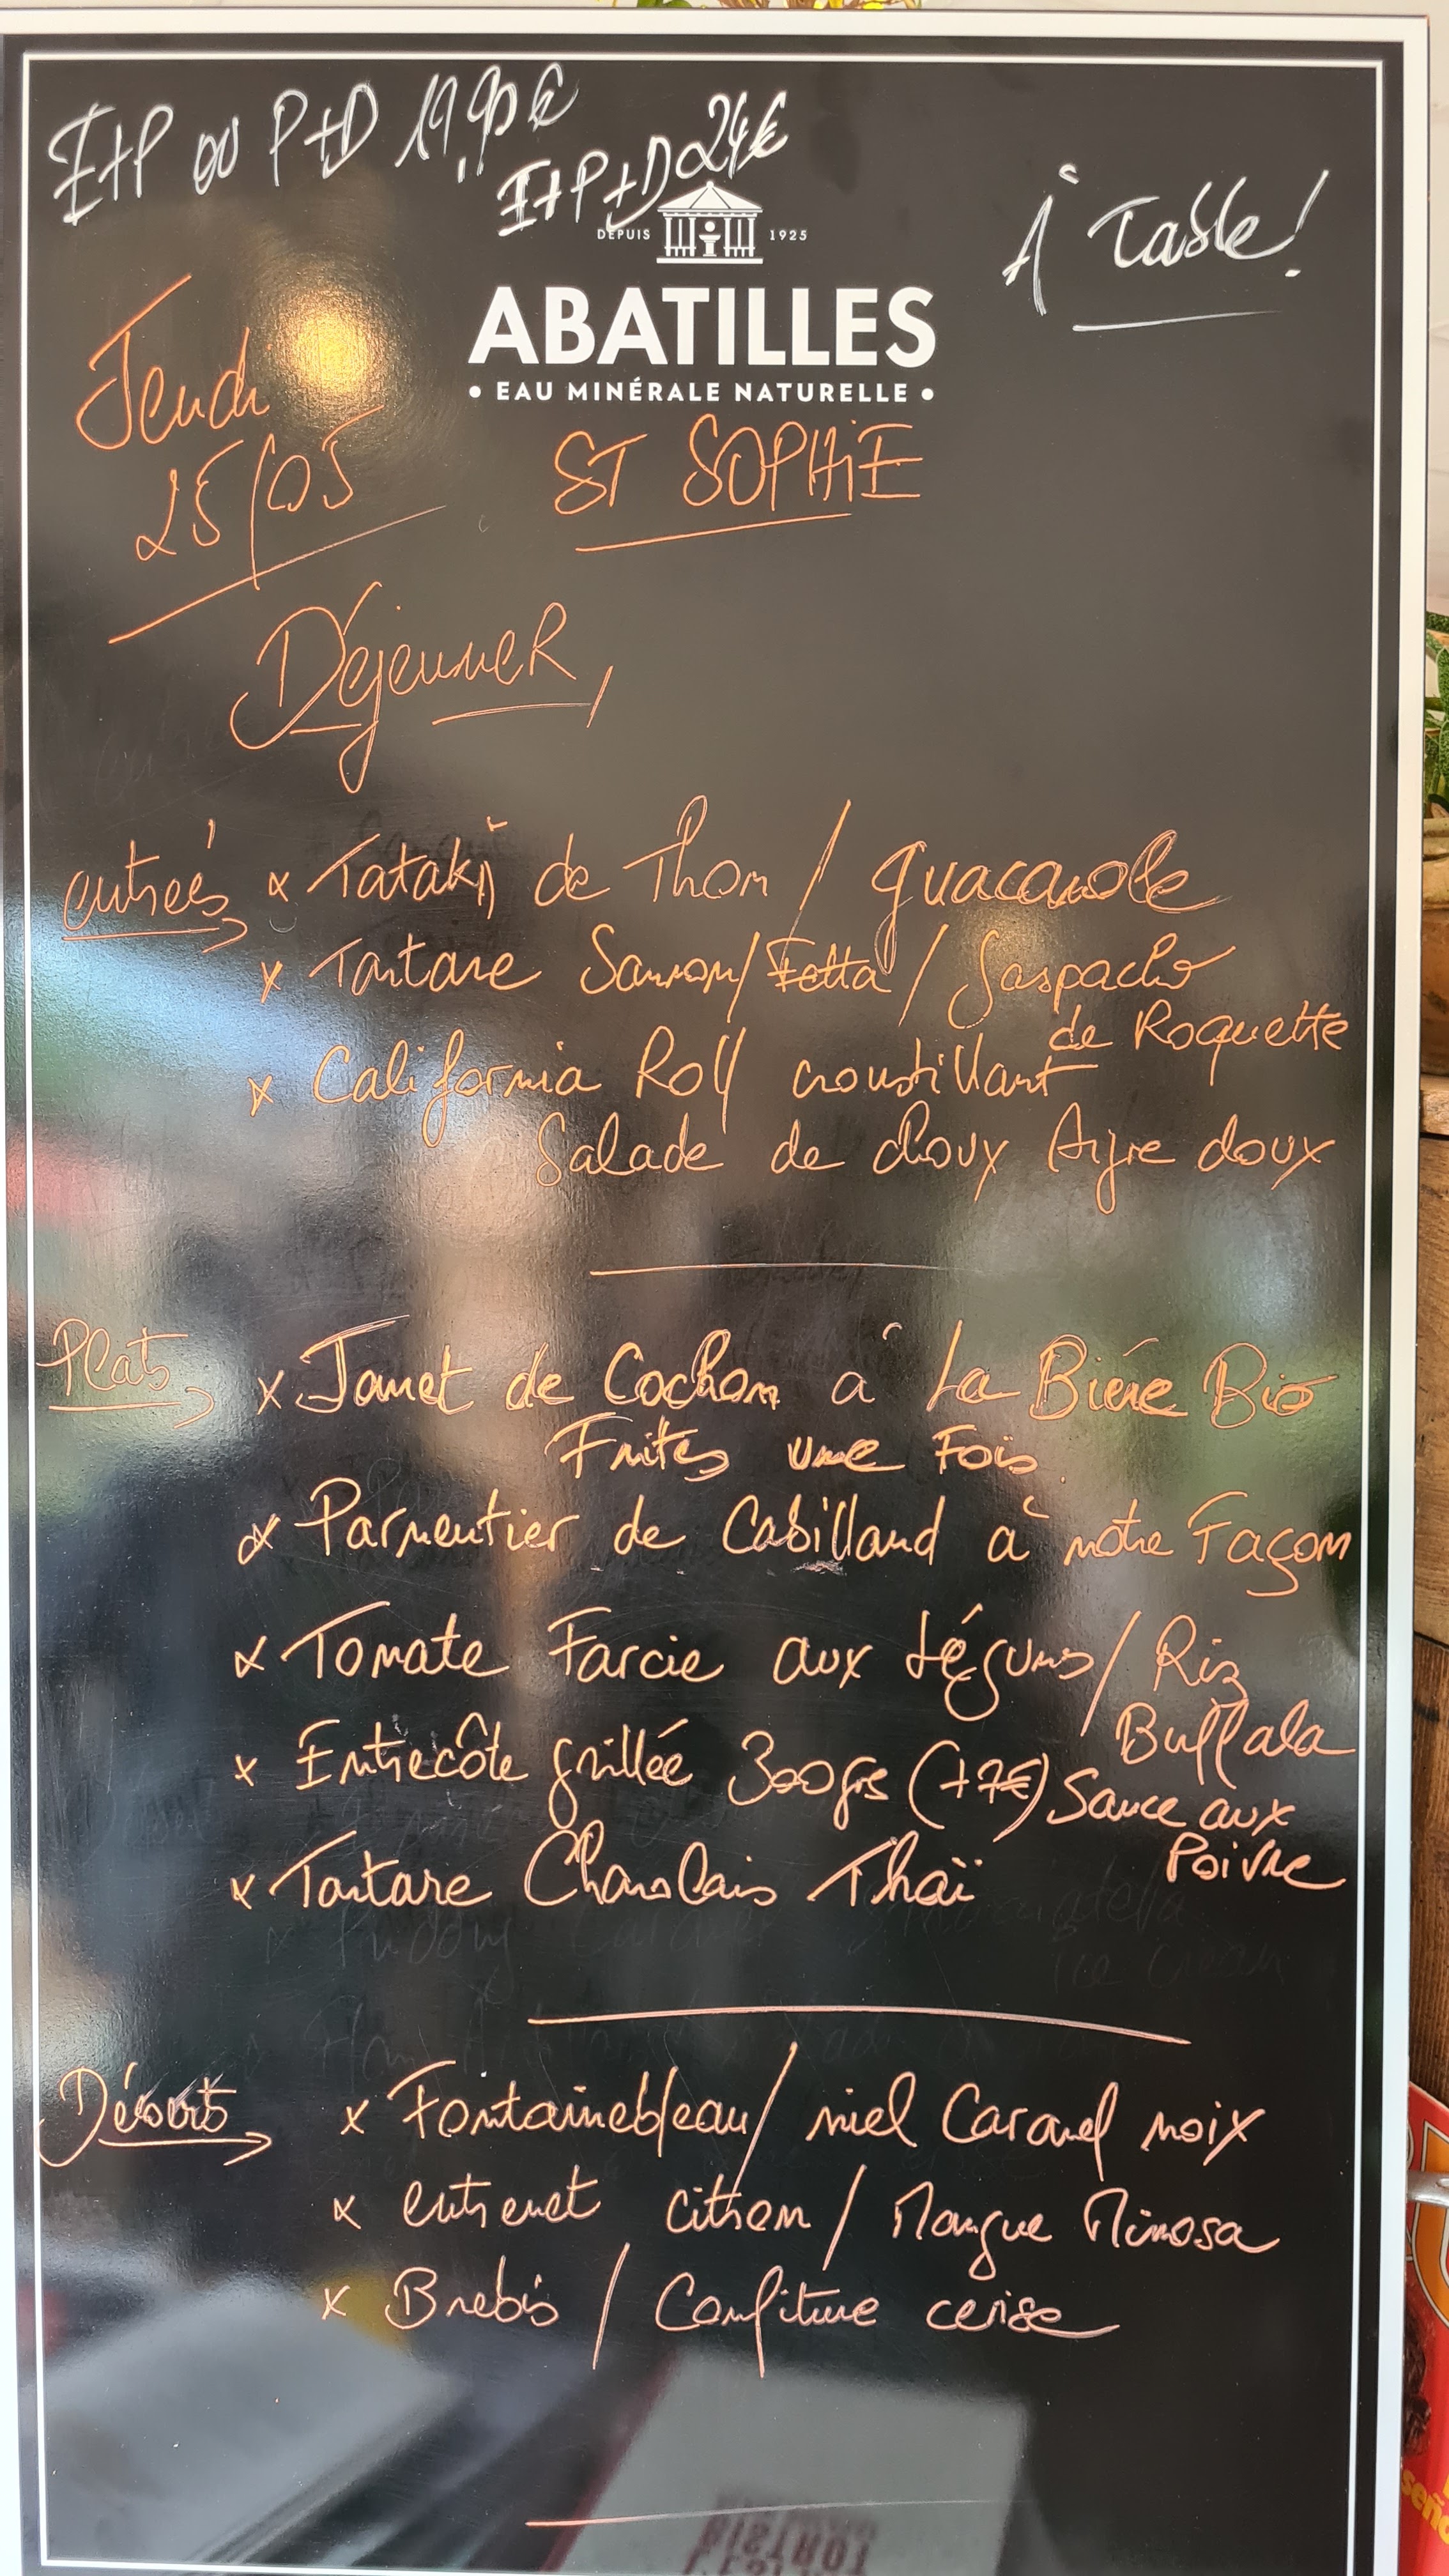 E+P ou P+D 19,90€
E+P+D 24€
À Table!
DEPUIS 1925
ABATILLES
• EAU MINÉRALE NATURELLE •
Jeudi
25/05
ST SOPHIE
Déjeuner,
entrées x Tataki de Thon / guacamole
x Tartare Saumon / Fetta / Gaspacho
de Roquette
x California Roll croustillant
Salade de choux Aigre doux
Plats x Jarret de Cochon à La Bière Bio
Frites une Fois.
x Parmentier de Cabillaud à notre Façon
x Tomate Farcie aux Légums / Riz
Buffala
x Entrecôte grillée 300grs (+7€) Sauce aux
Poivre
x Tartare Charolais Thaï
x Fontainebleau / miel Caramel noix
x entremet citron / Mangue Mimosa
x Brebis / Confiture cerise